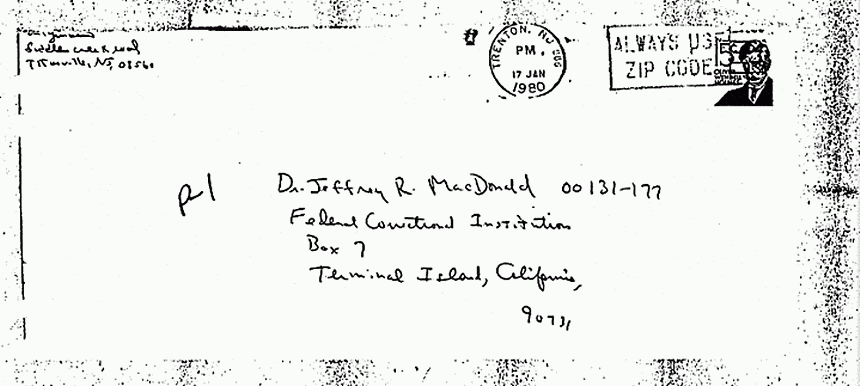 creek road
Titusville, NJ, 08560
TRENTON, NJ 086
PM
17 JAN
1980
ALWAYS US
ZIP CODE
Dr. Jeffrey R. MacDonald 00131-177
Federal Correctional Institution
Box 7
Terminal Island, California,
90731